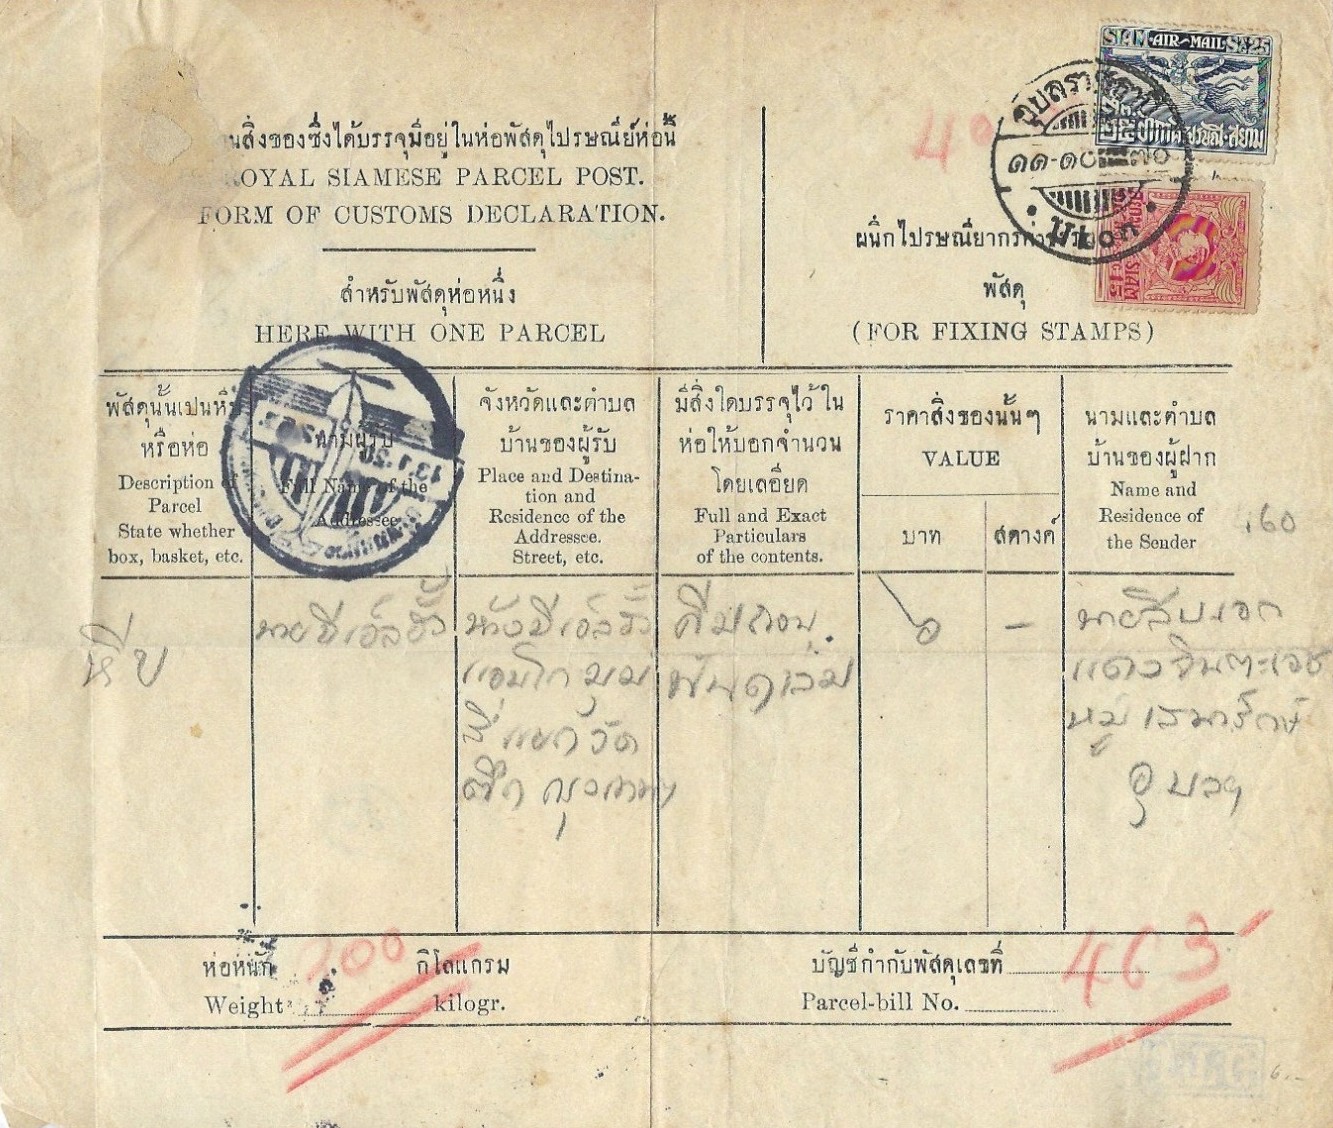 นสิ่งของซึ่งได้บรรจุมีอยู่ในห่อพัสดุไปรษณีย์ห่อนี้
ROYAL SIAMESE PARCEL POST.
FORM OF CUSTOMS DECLARATION.
สำหรับพัสดุห่อหนึ่ง
HERE WITH ONE PARCEL
40
SIAM AIR-MAIL St. 25
อุบลราชธานี
๑๑-๑๐ ๗๐
Ubon
SIAM
15
ผนึกไปรษณียากร
พัสดุ
(FOR FIXING STAMPS)
พัสดุนั้นเปนหีบ
หรือห่อ
Description of
Parcel
State whether
box, basket, etc.
นามผู้รับ
Full Name of the
Addressee
จังหวัดและตำบล
บ้านของผู้รับ
Place and Destina-
tion and
Residence of the
Addressee.
Street, etc.
มีสิ่งใดบรรจุไว้ใน
ห่อให้บอกจำนวน
โดยเลอียด
Full and Exact
Particulars
of the contents.
ราคาสิ่งของนั้นๆ
VALUE
บาท
สตางค์
นามและตำบล
บ้านของผู้ฝาก
Name and
Residence of
the Sender
.60
13.1.30
หีบ
นายบีเอ์ลฮั้ว
ห้างบีเอ์ลฮั้ว
มุม
สี่แยกวัด
ตึก กรุงเทพฯ
คีมถอน
ฟัน ๔ เล่ม
๖ —
นายสิบเอก
แดง จินตะเวช
หมู่เสนารักษ์
อุบลฯ
ห่อหนัก 200 กิโลแกรม
Weight kilogr.
บัญชีกำกับพัสดุเลขที่ 463
Parcel-bill No.